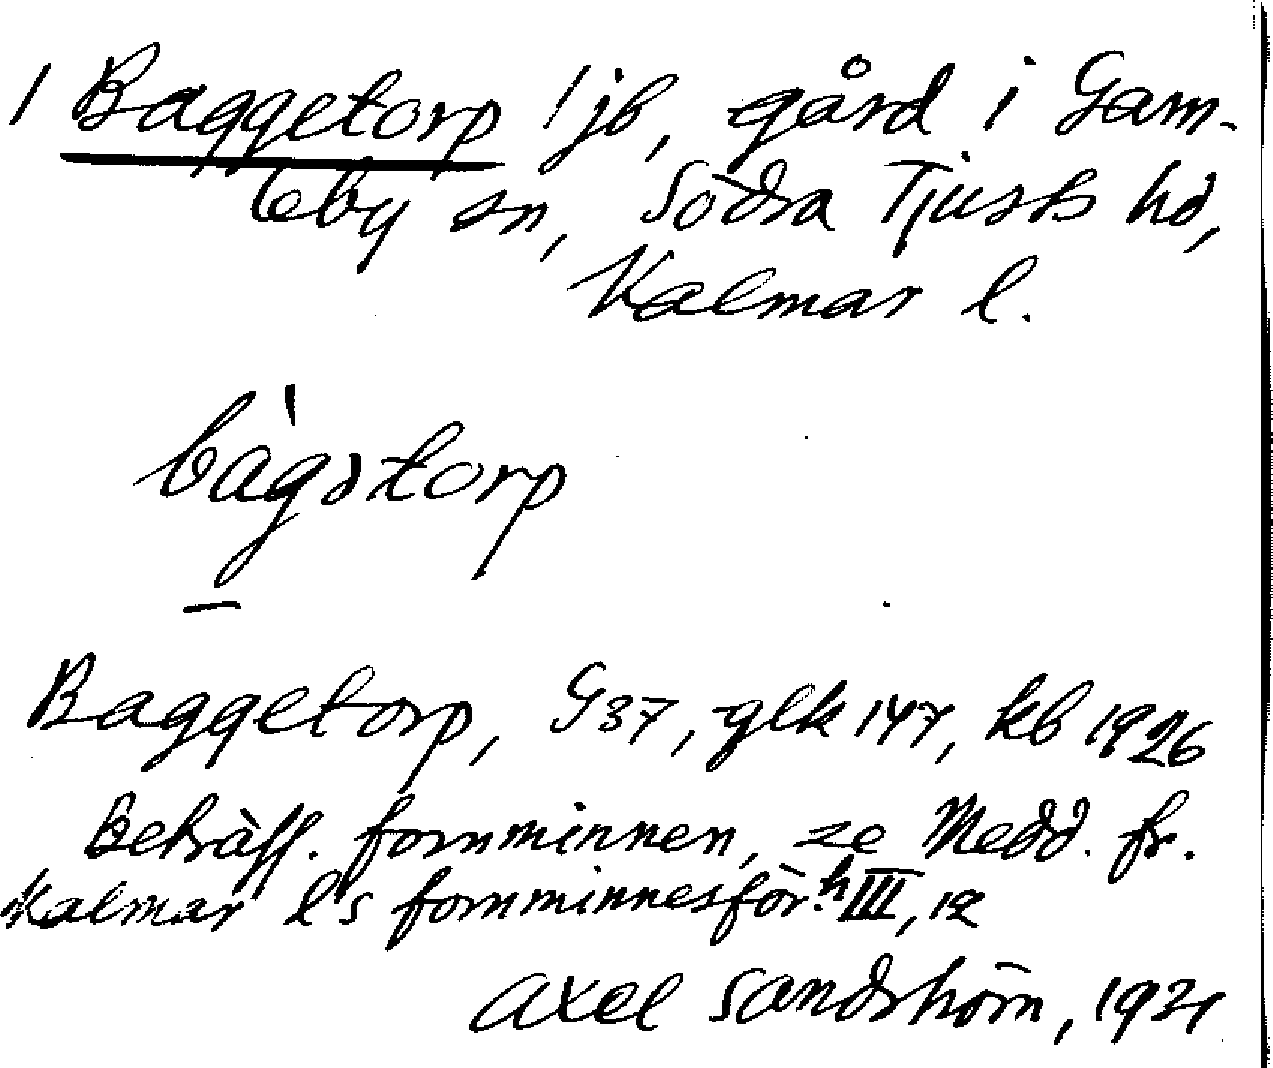 1 Baggetorp 1 jb, gård i Gam-
leby sn, Södra Tjusts hd,
Kalmar l.
bàgətorp
Baggetorp, G 37, glk 147, kb 1926
Beträff. fornminnen, se Medd. fr.
Kalmar l's fornminnesför. h III, 12
Axel Sandström, 1921